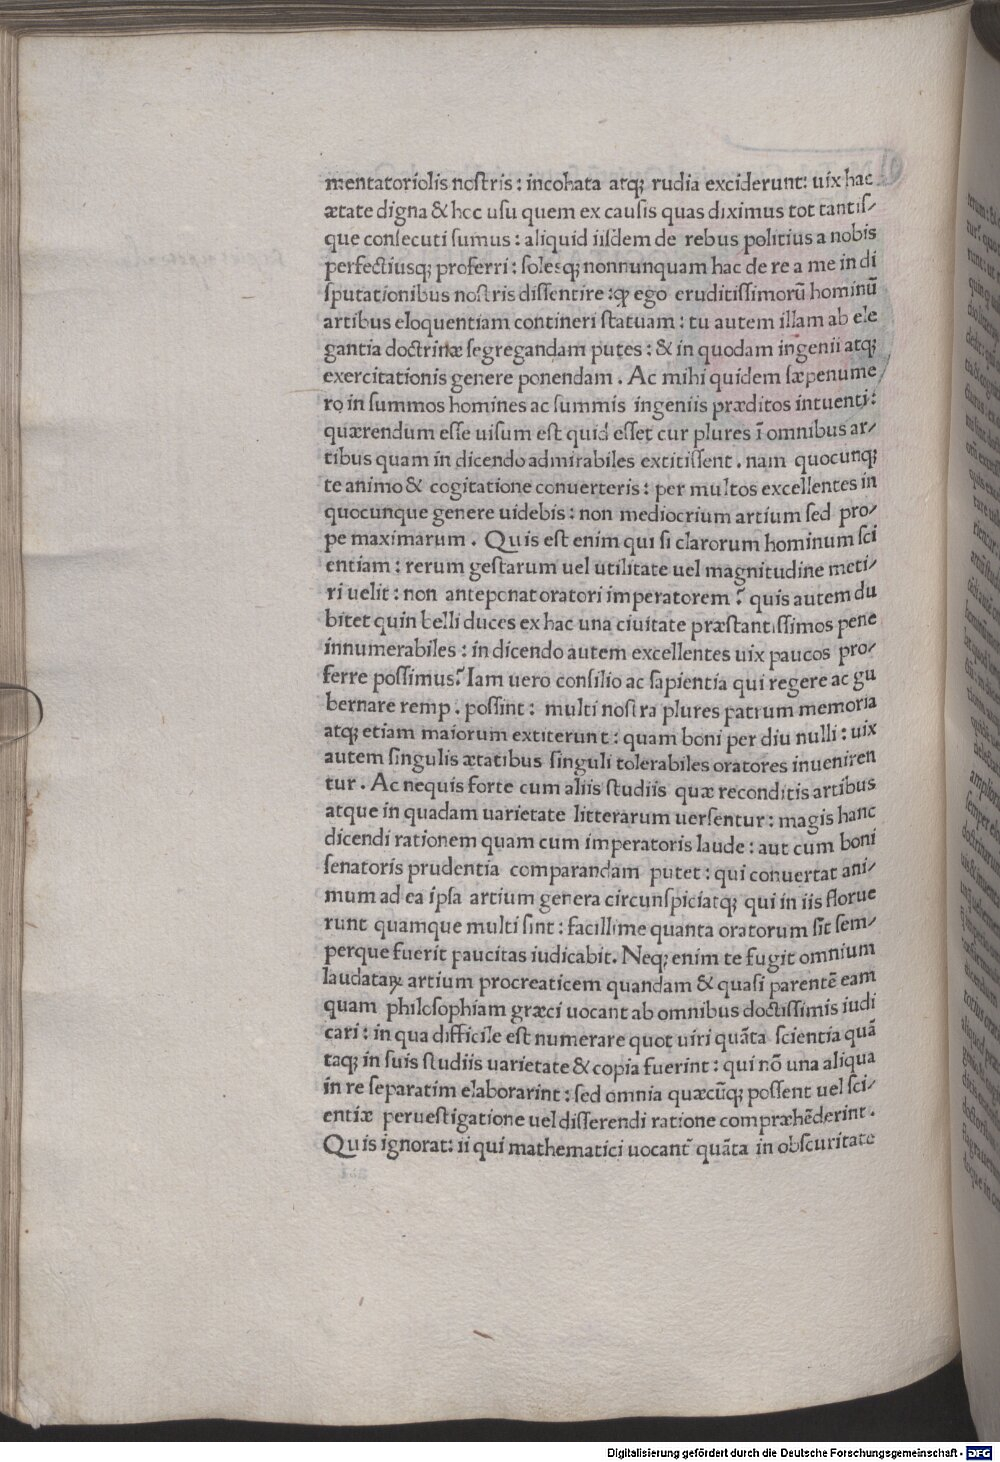 mentatoriolis noſtris : incohata atq; rudia exciderunt: uix hac
ætate digna & hoc uſu quem ex cauſis quas diximus tot tantiſ⸗
que conſecuti ſumus : aliquid iiſdem de rebus politius a nobis
perfectiusq; proferri : ſolesq; nonnunquam hac de re a me in di
ſputationibus noſtris diſſentire : ꝙ ego eruditiſſimorū hominū
artibus eloquentiam contineri ſtatuam : tu autem illam ab ele
gantia doctrinæ ſegregandam putes : & in quodam ingenii atq;
exercitationis genere ponendam . Ac mihi quidem ſæpenume
ro in ſummos homines ac ſummis ingeniis præditos intuenti :
quærendum eſſe uiſum eſt quid eſſet cur plures ī omnibus ar⸗
tibus quam in dicendo admirabiles extitiſſent . nam quocunq;
te animo & cogitatione conuerteris : per multos excellentes in
quocunque genere uidebis : non mediocrium artium ſed pro⸗
pe maximarum . Quis eſt enim qui ſi clarorum hominum ſci
entiam : rerum geſtarum uel utilitate uel magnitudine meti⸗
ri uelit : non anteponat oratori imperatorem ? quis autem du
bitet quin belli duces ex hac una ciuitate præſtantiſſimos pene
innumerabiles : in dicendo autem excellentes uix paucos pro⸗
ferre poſſimus? Iam uero conſilio ac ſapientia qui regere ac gu
bernare remp . poſſint : multi noſtra plures patrum memoria
atq; etiam maiorum extiterunt : quam boni per diu nulli : uix
autem ſingulis ætatibus ſinguli tolerabiles oratores inueniren
tur . Ac nequis forte cum aliis ſtudiis quæ reconditis artibus
atque in quadam uarietate litterarum uerſentur : magis hanc
dicendi rationem quam cum imperatoris laude : aut cum boni
ſenatoris prudentia comparandam putet : qui conuertat ani⸗
mum ad ea ipſa artium genera circunſpiciatq; qui in iis florue
runt quamque multi ſint : facillime quanta oratorum ſit ſem⸗
perque fuerit paucitas iudicabit. Neq; enim te fugit omnium
laudataꝝ artium procreaticem quandam & quaſi parentē eam
quam philoſophiam græci uocant ab omnibus doctiſſimis iudi
cari : in qua difficile eſt numerare quot uiri quāta ſcientia quā
taq; in ſuis ſtudiis uarietate & copia fuerint : qui nō una aliqua
in re ſeparatim elaborarint : ſed omnia quæcūq; poſſent uel ſci⸗
entiæ peruestigatione uel diſſerendi ratione compræhēderint .
Quis ignorat: ii qui mathematici uocant᷑ quāta in obſcuritate
Digitalisierung gefördert durch die Deutsche Forschungsgemeinschaft - DFG